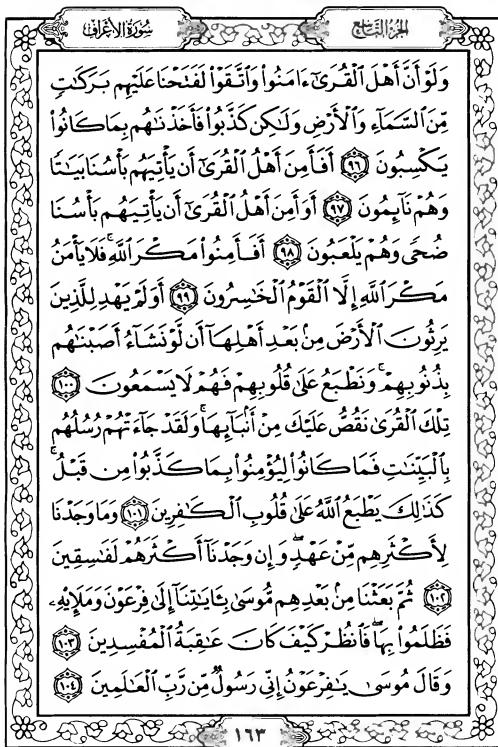 سُورَةُ الأَعْرَافِ الجُزْءُ التَّاسِعُ
وَلَوْ أَنَّ أَهْلَ ٱلْقُرَىٰٓ ءَامَنُوا۟ وَٱتَّقَوْا۟ لَفَتَحْنَا عَلَيْهِم بَرَكَـٰتٍ
مِّنَ ٱلسَّمَآءِ وَٱلْأَرْضِ وَلَـٰكِن كَذَّبُوا۟ فَأَخَذْنَـٰهُم بِمَا كَانُوا۟
يَكْسِبُونَ ٩٦ أَفَأَمِنَ أَهْلُ ٱلْقُرَىٰٓ أَن يَأْتِيَهُم بَأْسُنَا بَيَـٰتًا
وَهُمْ نَآئِمُونَ ٩٧ أَوَأَمِنَ أَهْلُ ٱلْقُرَىٰٓ أَن يَأْتِيَهُم بَأْسُنَا
ضُحًى وَهُمْ يَلْعَبُونَ ٩٨ أَفَأَمِنُوا۟ مَكْرَ ٱللَّهِ ۚ فَلَا يَأْمَنُ
مَكْرَ ٱللَّهِ إِلَّا ٱلْقَوْمُ ٱلْخَـٰسِرُونَ ٩٩ أَوَلَمْ يَهْدِ لِلَّذِينَ
يَرِثُونَ ٱلْأَرْضَ مِنۢ بَعْدِ أَهْلِهَآ أَن لَّوْ نَشَآءُ أَصَبْنَـٰهُم
بِذُنُوبِهِمْ ۚ وَنَطْبَعُ عَلَىٰ قُلُوبِهِمْ فَهُمْ لَا يَسْمَعُونَ ١٠٠
تِلْكَ ٱلْقُرَىٰ نَقُصُّ عَلَيْكَ مِنْ أَنۢبَآئِهَا ۚ وَلَقَدْ جَآءَتْهُمْ رُسُلُهُم
بِٱلْبَيِّنَـٰتِ فَمَا كَانُوا۟ لِيُؤْمِنُوا۟ بِمَا كَذَّبُوا۟ مِن قَبْلُ ۚ
كَذَٰلِكَ يَطْبَعُ ٱللَّهُ عَلَىٰ قُلُوبِ ٱلْكَـٰفِرِينَ ١٠١ وَمَا وَجَدْنَا
لِأَكْثَرِهِم مِّنْ عَهْدٍ ۖ وَإِن وَجَدْنَآ أَكْثَرَهُمْ لَفَـٰسِقِينَ
١٠٢ ثُمَّ بَعَثْنَا مِنۢ بَعْدِهِم مُّوسَىٰ بِـَٔايَـٰتِنَآ إِلَىٰ فِرْعَوْنَ وَمَلَإِي۟هِۦ
فَظَلَمُوا۟ بِهَا ۖ فَٱنظُرْ كَيْفَ كَانَ عَـٰقِبَةُ ٱلْمُفْسِدِينَ ١٠٣
وَقَالَ مُوسَىٰ يَـٰفِرْعَوْنُ إِنِّى رَسُولٌ مِّن رَّبِّ ٱلْعَـٰلَمِينَ ١٠٤
١٦٣